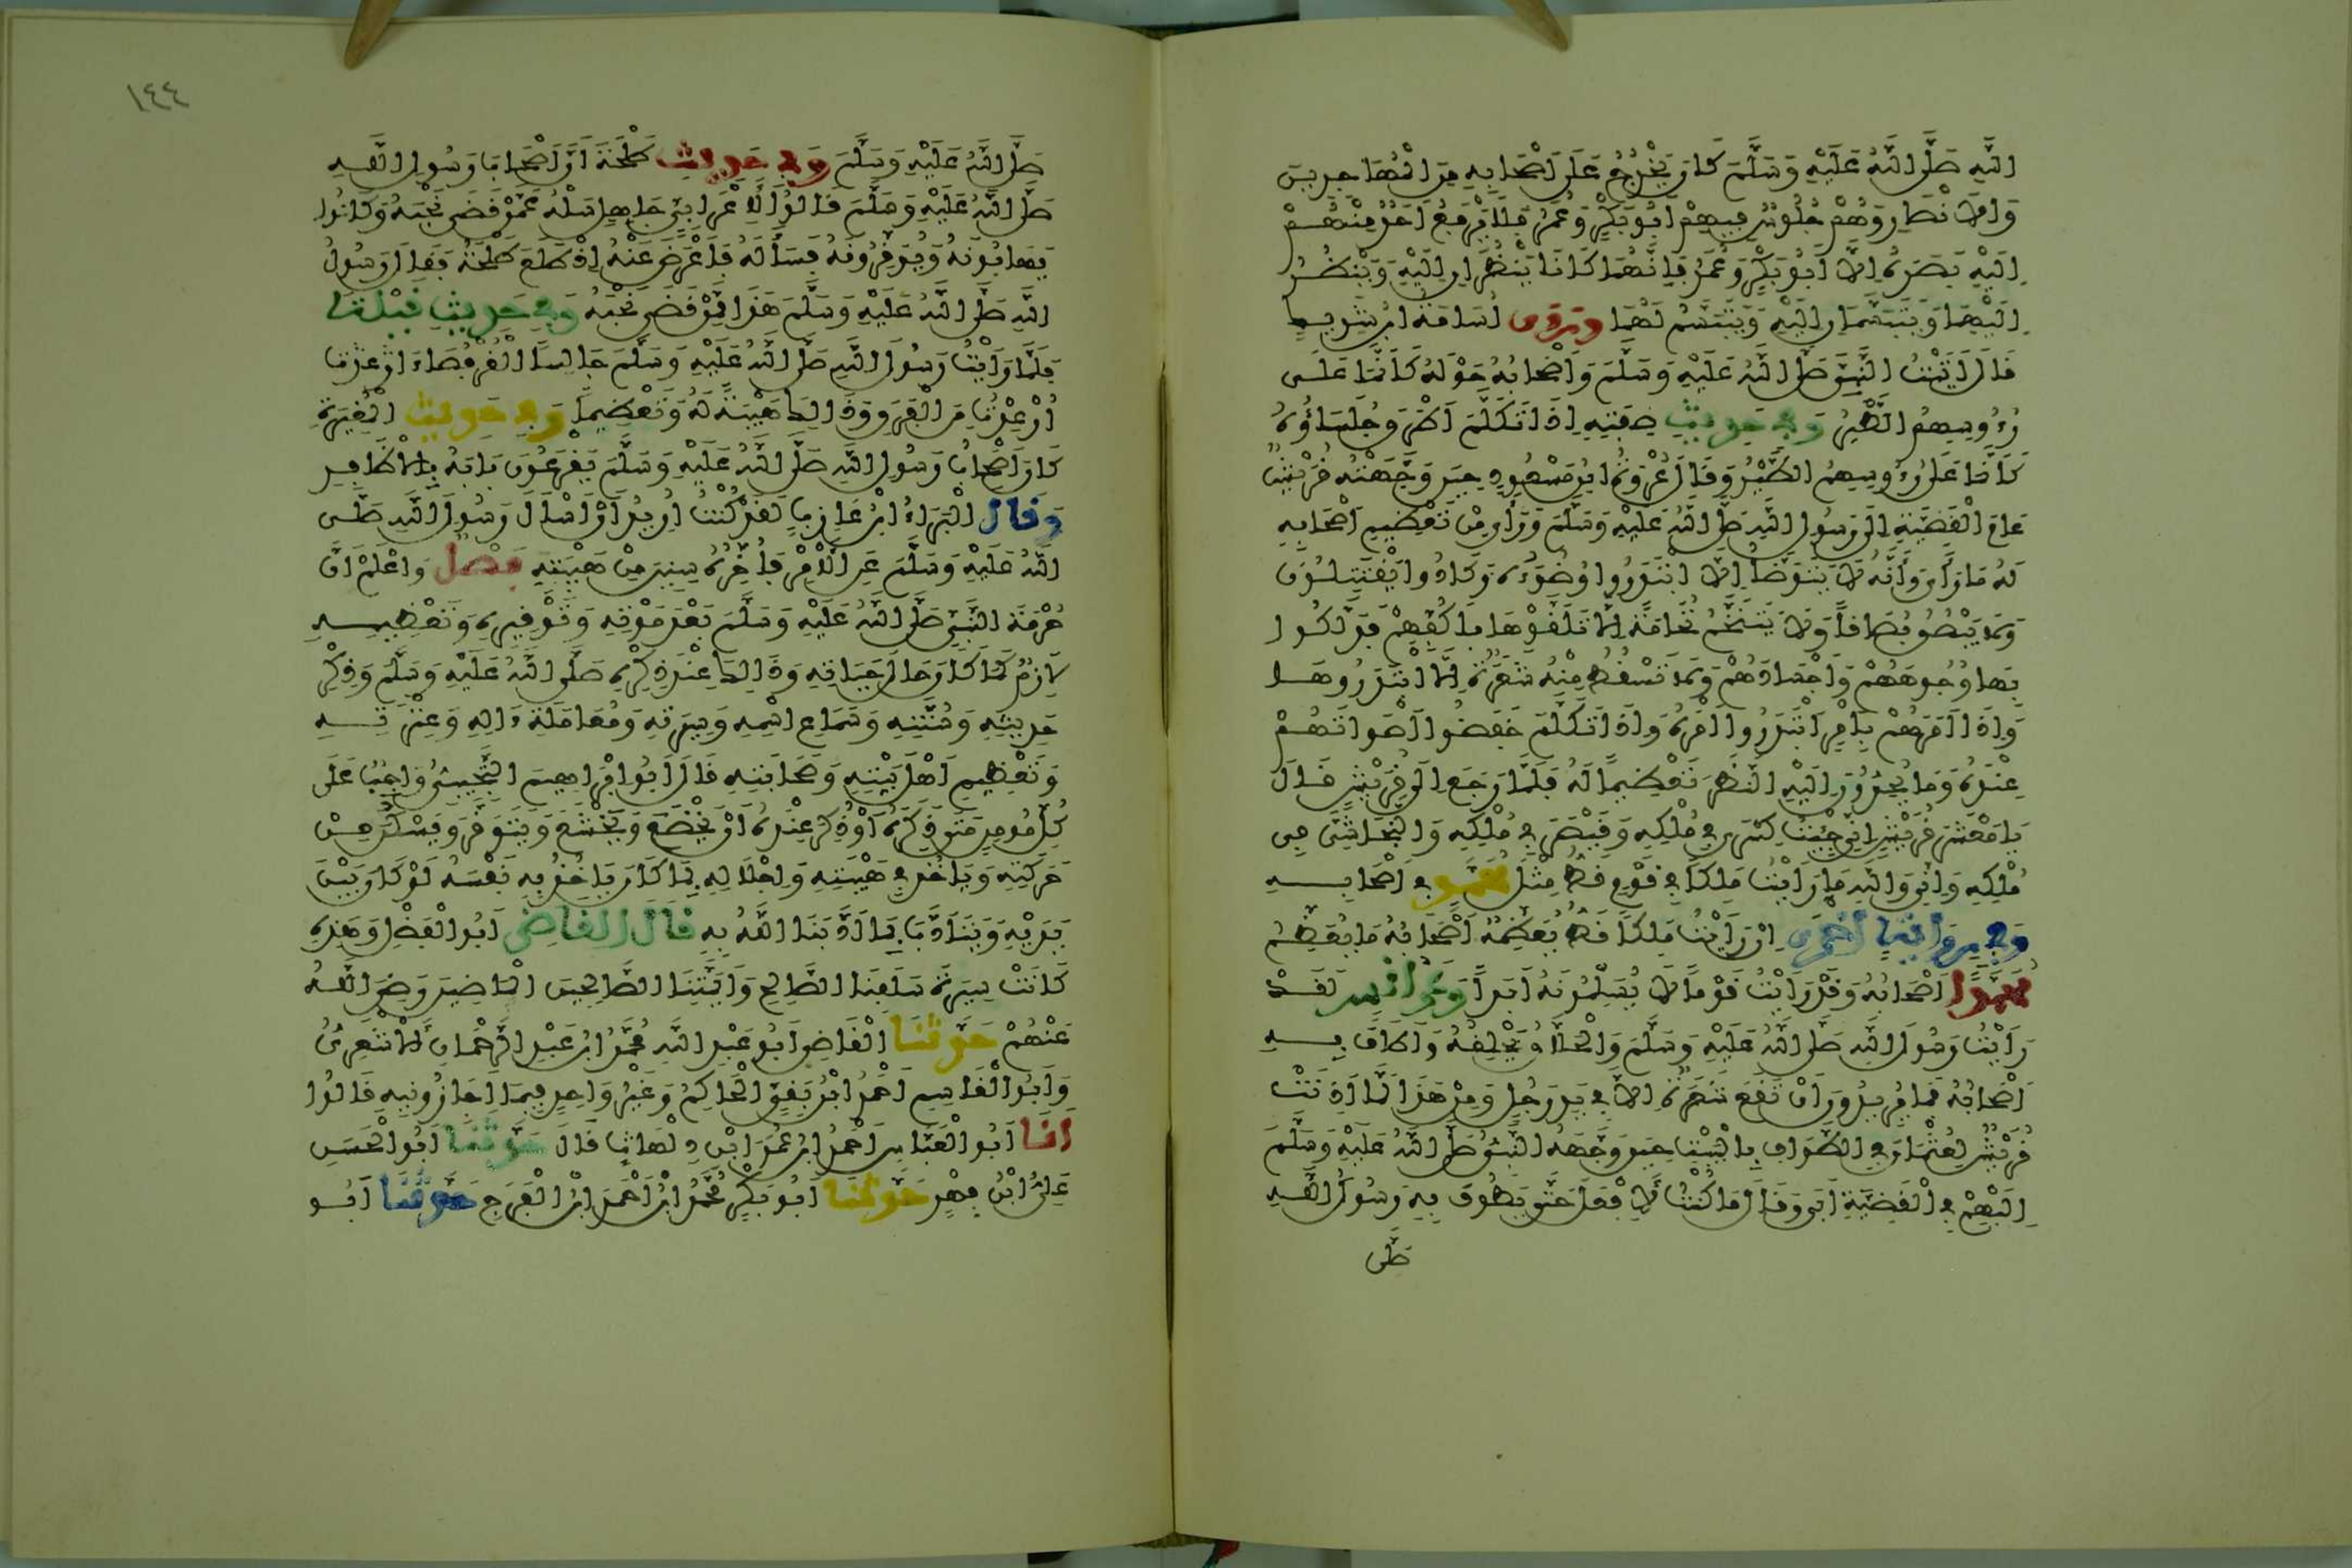 اللَّهِ صَلَّى اللَّهُ عَلَيْهِ وَسَلَّمَ كَانَ يَخْرُجُ عَلَى أَصْحَابِهِ مِنَ الْمُهَاجِرِينَ
وَالْأَنْصَارِ وَهُمْ جُلُوسٌ فِيهِمْ أَبُو بَكْرٍ وَعُمَرُ فَلَا يَرْفَعُ أَحَدٌ مِنْهُمْ
إِلَيْهِ بَصَرَهُ إِلَّا أَبُو بَكْرٍ وَعُمَرُ فَإِنَّهُمَا كَانَا يَنْظُرَانِ إِلَيْهِ وَيَنْظُرُ
إِلَيْهِمَا وَيَتَبَسَّمَانِ إِلَيْهِ وَيَتَبَسَّمُ لَهُمَا وَرَوَى أُسَامَةُ ابْنُ شَرِيكٍ
قَالَ أَتَيْتُ النَّبِيَّ صَلَّى اللَّهُ عَلَيْهِ وَسَلَّمَ وَأَصْحَابُهُ حَوْلَهُ كَأَنَّمَا عَلَى
رُءُوسِهِمُ الطَّيْرُ وَفِي حَدِيثِ صِفَتِهِ إِذَا تَكَلَّمَ أَطْرَقَ جُلَسَاؤُهُ
كَأَنَّمَا عَلَى رُءُوسِهِمُ الطَّيْرُ وَقَالَ عُرْوَةُ ابْنُ مَسْعُودٍ حِينَ وَجَّهَتْهُ قُرَيْشٌ
عَامَ الْقَضِيَّةِ إِلَى رَسُولِ اللَّهِ صَلَّى اللَّهُ عَلَيْهِ وَسَلَّمَ وَرَأَى مِنْ تَعْظِيمِ أَصْحَابِهِ
لَهُ مَا رَأَى وَأَنَّهُ لَا يَتَوَضَّأُ إِلَّا ابْتَدَرُوا وَضُوءَهُ وَكَادُوا يَقْتَتِلُونَ
وَلَا يَبْصُقُ بُصَاقًا وَلَا يَتَنَخَّمُ نُخَامَةً إِلَّا تَلَقَّوْهَا بِأَكُفِّهِمْ فَدَلَكُوا
بِهَا وُجُوهَهُمْ وَأَجْسَادَهُمْ وَلَا تَسْقُطُ مِنْهُ شَعَرَةٌ إِلَّا ابْتَدَرُوهَا
وَإِذَا أَمَرَهُمْ بِأَمْرٍ ابْتَدَرُوا أَمْرَهُ وَإِذَا تَكَلَّمَ خَفَضُوا أَصْوَاتَهُمْ
عِنْدَهُ وَمَا يُحِدُّونَ إِلَيْهِ النَّظَرَ تَعْظِيمًا لَهُ فَلَمَّا رَجَعَ إِلَى قُرَيْشٍ قَالَ
يَا مَعْشَرَ قُرَيْشٍ إِنِّي جِئْتُ كِسْرَى فِي مُلْكِهِ وَقَيْصَرَ فِي مُلْكِهِ وَالنَّجَاشِيَّ فِي
مُلْكِهِ وَإِنِّي وَاللَّهِ مَا رَأَيْتُ مَلِكًا فِي قَوْمٍ قَطُّ مِثْلَ مُحَمَّدٍ فِي أَصْحَابِهِ
وَفِي رِوَايَةٍ أُخْرَى إِنْ رَأَيْتُ مَلِكًا قَطُّ يُعَظِّمُهُ أَصْحَابُهُ مَا يُعَظِّمُ
مُحَمَّدًا أَصْحَابُهُ وَقَدْ رَأَيْتُ قَوْمًا لَا يُسَلِّمُونَهُ أَبَدًا وَعَنْ أَنَسٍ لَقَدْ
رَأَيْتُ رَسُولَ اللَّهِ صَلَّى اللَّهُ عَلَيْهِ وَسَلَّمَ وَالْحَلَّاقُ يَحْلِقُهُ وَأَطَافَ بِهِ
أَصْحَابُهُ فَمَا يُرِيدُونَ أَنْ تَقَعَ شَعَرَةٌ إِلَّا فِي يَدِ رَجُلٍ وَمِنْ هَذَا لَمَّا أَذِنَتْ
قُرَيْشٌ لِعُثْمَانَ فِي الطَّوَافِ بِالْبَيْتِ حِينَ وَجَّهَهُ النَّبِيُّ صَلَّى اللَّهُ عَلَيْهِ وَسَلَّمَ
إِلَيْهِمْ فِي الْقَضِيَّةِ أَبَى وَقَالَ مَا كُنْتُ لِأَفْعَلَ حَتَّى يَطُوفَ بِهِ رَسُولُ اللَّهِ
صَلَّى
١٤٤
صَلَّى اللَّهُ عَلَيْهِ وَسَلَّمَ وَفِي حَدِيثِ طَلْحَةَ أَنَّ أَصْحَابَ رَسُولِ اللَّهِ
صَلَّى اللَّهُ عَلَيْهِ وَسَلَّمَ قَالُوا لِأَعْرَابِيٍّ جَاهِلٍ سَلْهُ عَمَّنْ قَضَى نَحْبَهُ وَكَانُوا
يَهَابُونَهُ وَيُوَقِّرُونَهُ فَسَأَلَهُ فَأَعْرَضَ عَنْهُ إِذْ طَلَعَ طَلْحَةُ فَقَالَ رَسُولُ
اللَّهِ صَلَّى اللَّهُ عَلَيْهِ وَسَلَّمَ هَذَا مِمَّنْ قَضَى نَحْبَهُ وَفِي حَدِيثِ قَيْلَةَ
فَلَمَّا رَأَيْتُ رَسُولَ اللَّهِ صَلَّى اللَّهُ عَلَيْهِ وَسَلَّمَ جَالِسًا الْقُرْفُصَاءَ أُرْعِدْتُ
أُرْعِدْتُ مِنَ الْفَرَقِ وَذَلِكَ هَيْبَةً لَهُ وَتَعْظِيمًا وَفِي حَدِيثِ الْمُغِيرَةِ
كَانَ أَصْحَابُ رَسُولِ اللَّهِ صَلَّى اللَّهُ عَلَيْهِ وَسَلَّمَ يَقْرَعُونَ بَابَهُ بِالْأَظَافِرِ
وَقَالَ الْبَرَاءُ ابْنُ عَازِبٍ لَقَدْ كُنْتُ أُرِيدُ أَنْ أَسْأَلَ رَسُولَ اللَّهِ صَلَّى
اللَّهُ عَلَيْهِ وَسَلَّمَ عَنِ الْأَمْرِ فَأُؤَخِّرُهُ سِنِينَ مِنْ هَيْبَتِهِ فَصْلٌ وَاعْلَمْ أَنَّ
حُرْمَةَ النَّبِيِّ صَلَّى اللَّهُ عَلَيْهِ وَسَلَّمَ بَعْدَ مَوْتِهِ وَتَوْقِيرِهِ وَتَعْظِيمِهِ
لَازِمٌ كَمَا كَانَ حَالَ حَيَاتِهِ وَذَلِكَ عِنْدَ ذِكْرِهِ صَلَّى اللَّهُ عَلَيْهِ وَسَلَّمَ وَذِكْرِ
حَدِيثِهِ وَسُنَّتِهِ وَسَمَاعِ اسْمِهِ وَسِيرَتِهِ وَمُعَامَلَةِ ءَالِهِ وَعِتْرَتِهِ
وَتَعْظِيمِ أَهْلِ بَيْتِهِ وَصَحَابَتِهِ قَالَ أَبُو إِبْرَاهِيمَ التُّجِيبِيُّ وَاجِبٌ عَلَى
كُلِّ مُومِنٍ مَتَى ذَكَرَهُ أَوْ ذُكِرَ عِنْدَهُ أَنْ يَخْضَعَ وَيَخْشَعَ وَيَتَوَقَّرَ وَيَسْكُنَ مِنْ
حَرَكَتِهِ وَيَأْخُذَ فِي هَيْبَتِهِ وَإِجْلَالِهِ بِمَا كَانَ يَأْخُذُ بِهِ نَفْسَهُ لَوْ كَانَ بَيْنَ
يَدَيْهِ وَيَتَأَدَّبَ بِمَا أَدَّبَنَا اللَّهُ بِهِ قَالَ الْقَاضِي أَبُو الْفَضْلِ وَهَذِهِ
كَانَتْ سِيرَةَ سَلَفِنَا الصَّالِحِ وَأَئِمَّتِنَا الصَّالِحِينَ الْمَاضِينَ رَضِيَ اللَّهُ
عَنْهُمْ حَدَّثَنَا الْقَاضِي أَبُو عَبْدِ اللَّهِ مُحَمَّدُ ابْنُ عَبْدِ الرَّحْمَانِ الْأَشْعَرِيُّ
وَأَبُو الْقَاسِمِ أَحْمَدُ ابْنُ بَقِيٍّ الْحَاكِمُ وَغَيْرُ وَاحِدٍ فِيمَا أَجَازُونِيهِ قَالُوا
أَنَا أَبُو الْعَبَّاسِ أَحْمَدُ ابْنُ عُمَرَ ابْنِ دِلْهَاثٍ قَالَ حَدَّثَنَا أَبُو الْحَسَنِ
عَلِيُّ ابْنُ فِهْرٍ حَدَّثَنَا أَبُو بَكْرٍ مُحَمَّدُ ابْنُ أَحْمَدَ ابْنِ الْفَرَجِ حَدَّثَنَا أَبُو